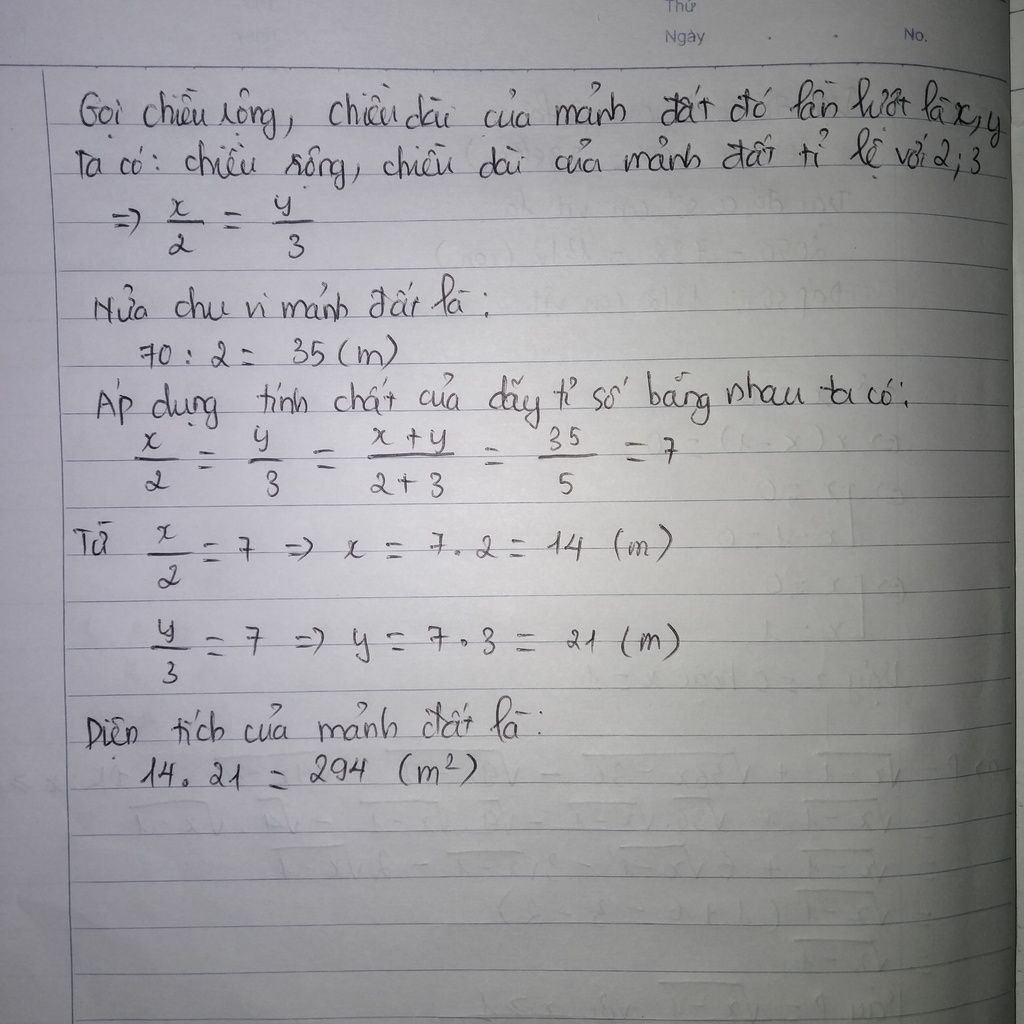 Thứ
Ngày . . No.
Gọi chiều rộng, chiều dài của mảnh đất đó lần lượt là x, y
Ta có: chiều rộng, chiều dài của mảnh đất tỉ lệ với 2; 3
=> x/2 = y/3
Nửa chu vi mảnh đất là:
70 : 2 = 35 (m)
Áp dụng tính chất của dãy tỉ số bằng nhau ta có:
x/2 = y/3 = (x + y)/(2 + 3) = 35/5 = 7
Từ x/2 = 7 => x = 7 . 2 = 14 (m)
y/3 = 7 => y = 7 . 3 = 21 (m)
Diện tích của mảnh đất là:
14 . 21 = 294 (m²)